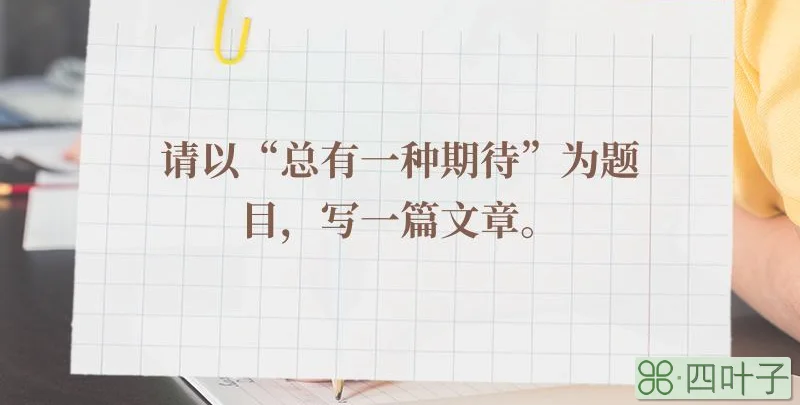 请以“总有一种期待”为题
目，写一篇文章。
四叶子